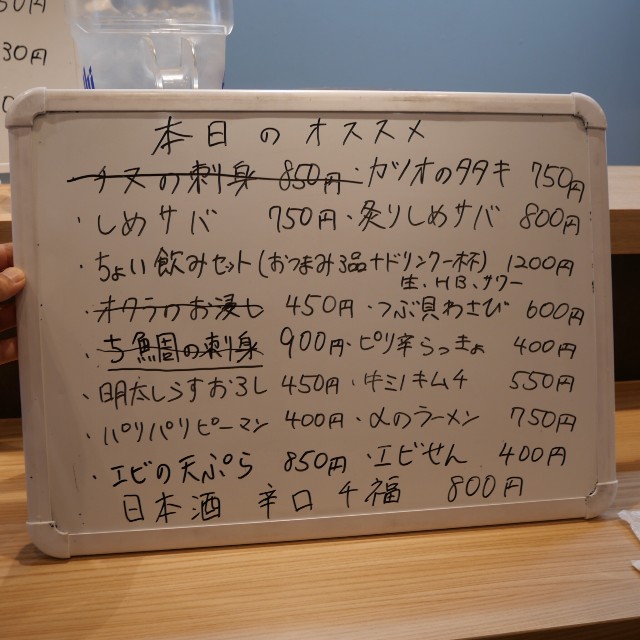 50円
30円
0
本日のオススメ
チヌの刺身 850円・カツオのタタキ 750円
・しめサバ 750円・炙りしめサバ 800円
・ちょい飲みセット(おつまみ3品+ドリンク一杯) 1200円
生、HB、サワー
・オクラのお浸し 450円・つぶ貝わさび 600円
・ち鯛の刺身 900円・ピリ辛らっきょ 400円
・明太しらすおろし 450円・牛ミノキムチ 550円
・パリパリピーマン 400円・〆のラーメン 750円
・エビの天ぷら 850円・エビせん 400円
日本酒 辛口 千福 800円